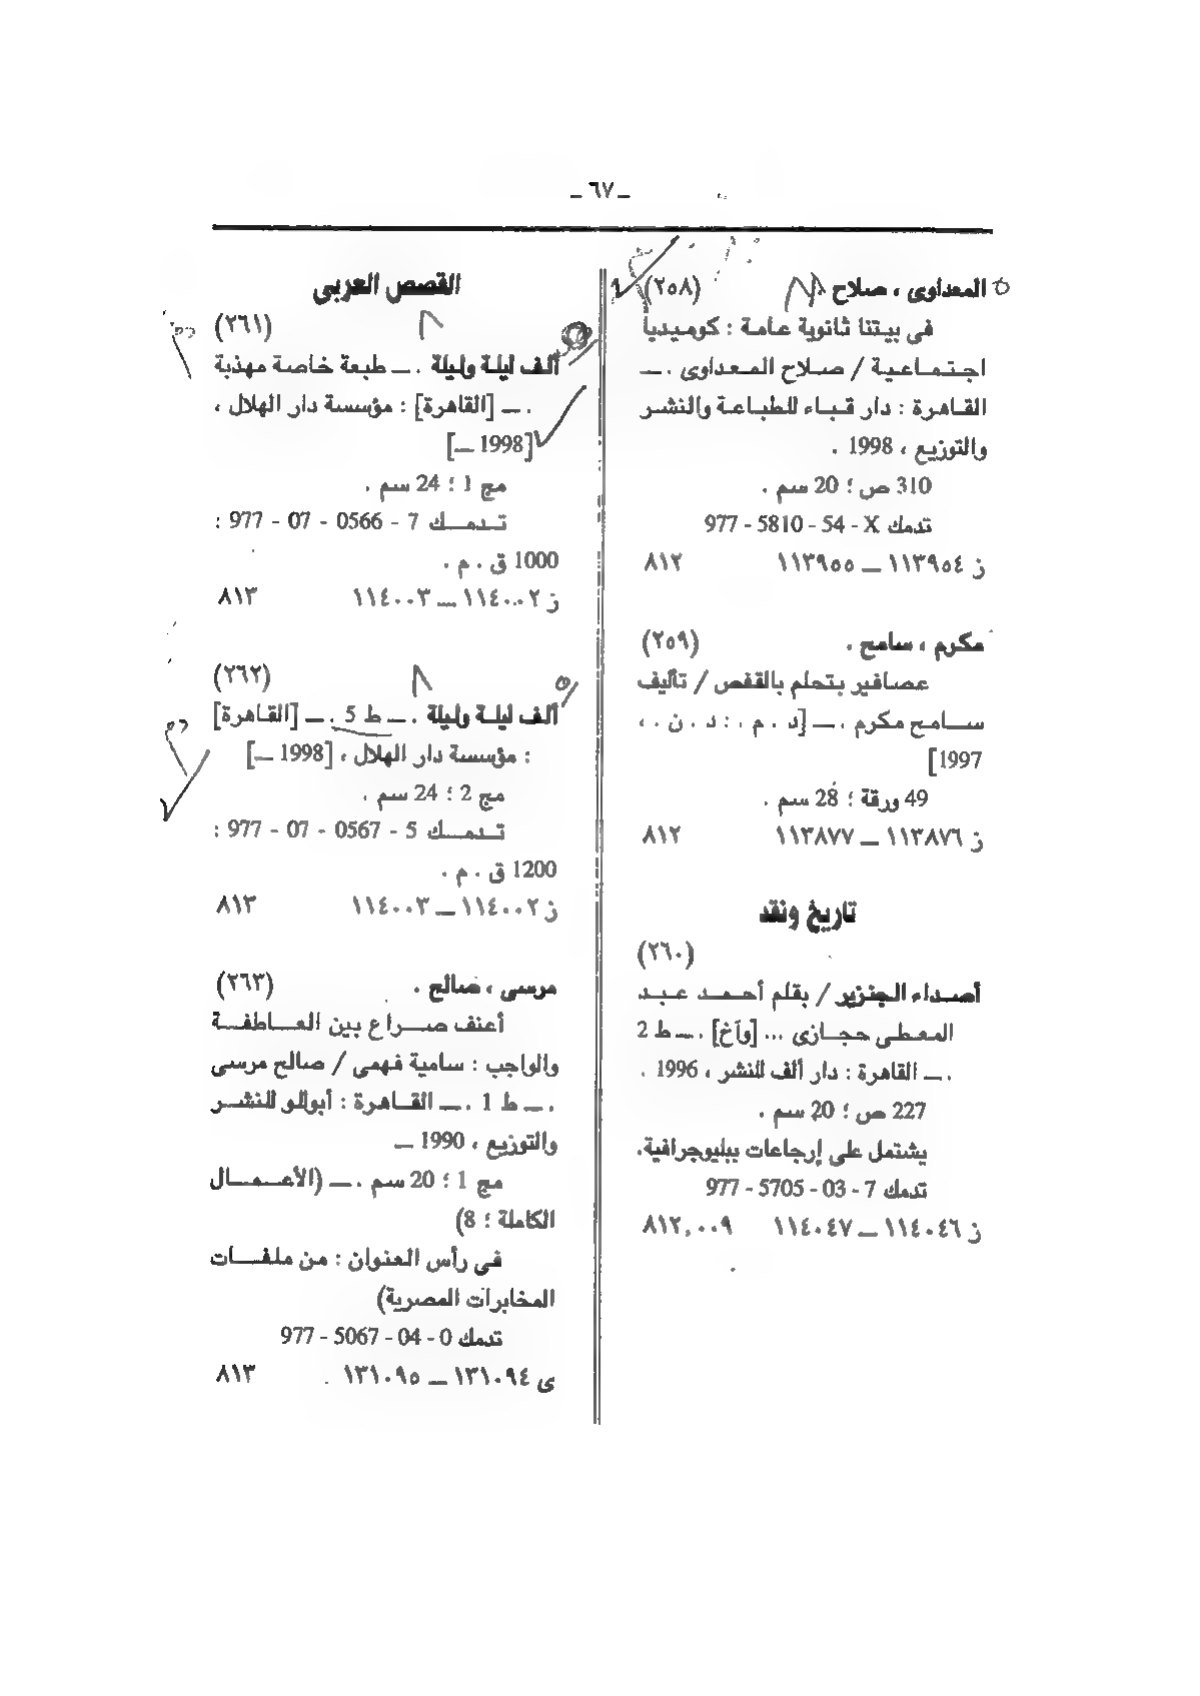 ــ ٦٧ ــ
المعداوى ، صلاح . (٢٥٨)
فى بيتنا ثانوية عامة : كوميديا
اجتماعية / صلاح المعداوى . ــ
القاهرة : دار قباء للطباعة والنشر
والتوزيع ، 1998 .
310 ص ؛ 20 سم .
تدمك 977 - 5810 - 54 - X
ز ١١٣٩٥٤ ــ ١١٣٩٥٥ ٨١٢
مكرم ، سامح . (٢٥٩)
عصافير بتحلم بالقفص / تأليف
سامح مكرم . ــ [د . م . : د . ن . ،
1997]
49 ورقة ؛ 28 سم .
ز ١١٣٨٧٦ ــ ١١٣٨٧٧ ٨١٢
تاريخ ونقد
(٢٦٠)
أصداء الجنزير / بقلم أحمد عبد
المعطى حجازى ... [وآخ] . ــ ط 2
. ــ القاهرة : دار ألف للنشر ، 1996 .
227 ص ؛ 20 سم .
يشتمل على إرجاعات ببليوجرافية.
تدمك 7 - 03 - 5705 - 977
ز ١١٤٠٤٦ ــ ١١٤٠٤٧ ٨١٢,٠٠٩
القصص العربى
(٢٦١)
ألف ليلة وليلة . ــ طبعة خاصة مهذبة
. ــ [القاهرة] : مؤسسة دار الهلال ،
[1998 ــ]
مج 1 ؛ 24 سم .
تدمك 7 - 0566 - 07 - 977 :
1000 ق . م .
ز ١١٤٠٠٢ ــ ١١٤٠٠٣ ٨١٣
(٢٦٢)
ألف ليلة وليلة . ــ ط 5 . ــ [القاهرة]
: مؤسسة دار الهلال ، [1998 ــ]
مج 2 ؛ 24 سم .
تدمك 5 - 0567 - 07 - 977 :
1200 ق . م .
ز ١١٤٠٠٢ ــ ١١٤٠٠٣ ٨١٣
مرسى ، صالح . (٢٦٣)
أعنف صراع بين العاطفة
والواجب : سامية فهمى / صالح مرسى
. ــ ط 1 . ــ القاهرة : أبوللو للنشر
والتوزيع ، 1990 ــ
مج 1 ؛ 20 سم . ــ (الأعمال
الكاملة ؛ 8)
فى رأس العنوان : من ملفات
المخابرات المصرية)
تدمك 0 - 04 - 5067 - 977
ى ١٣١٠٩٤ ــ ١٣١٠٩٥ ٨١٣